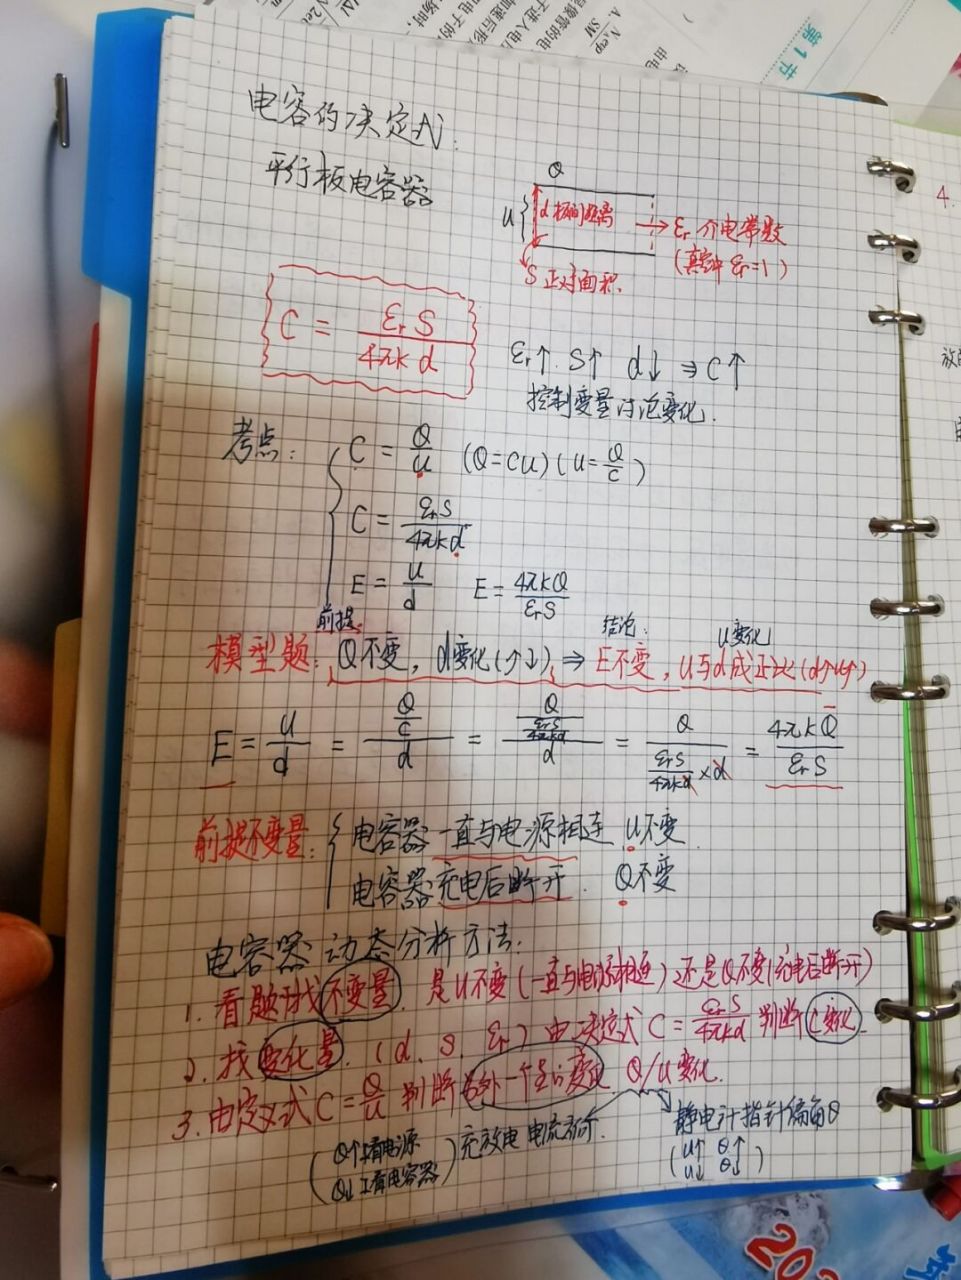 第1节
电容的决定式.
平行板电容器
Q
U{ d 板间距离 → εr 介电常数
(真空中 εr=1)
S 正对面积.
C = εr S / 4πk d
εr↑. S↑ d↓ ⇒ C↑
控制变量讨论变化.
考点:
C = Q/U (Q=CU) (U=Q/C)
C = εrS / 4πkd
E = U/d E = 4πkQ / εrS
前提. 结论: U变化
模型题: Q不变, d变化(↑↓) ⇒ E不变, U与d成正比(d↑U↑)
E = U/d = (Q/C)/d = (Q/(εrS/4πkd))/d = Q/((εrS/4πkd)×d) = 4πkQ/εrS
前提不变量: { 电容器一直与电源相连 U不变
电容器充电后断开. Q不变
电容器动态分析方法:
1. 看题干找不变量. 是U不变(一直与电源相连)还是Q不变(充电后断开)
2. 找变化量. (d、S、εr) 由决定式 C = εrS/4πkd 判断C变化.
3. 由定义式 C = Q/U 判断另外一个量的变化 Q/U变化.
充放电 电流 静电计指针偏角θ
(Q↑ 看电源
Q↓ 看电容器)
(U↑ θ↑
U↓ θ↓)
4.